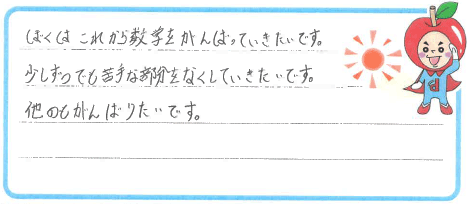 ぼくは これから数学をがんばっていきたいです。
少しずつでも苦手な部分をなくしていきたいです。
他のもがんばりたいです。
d